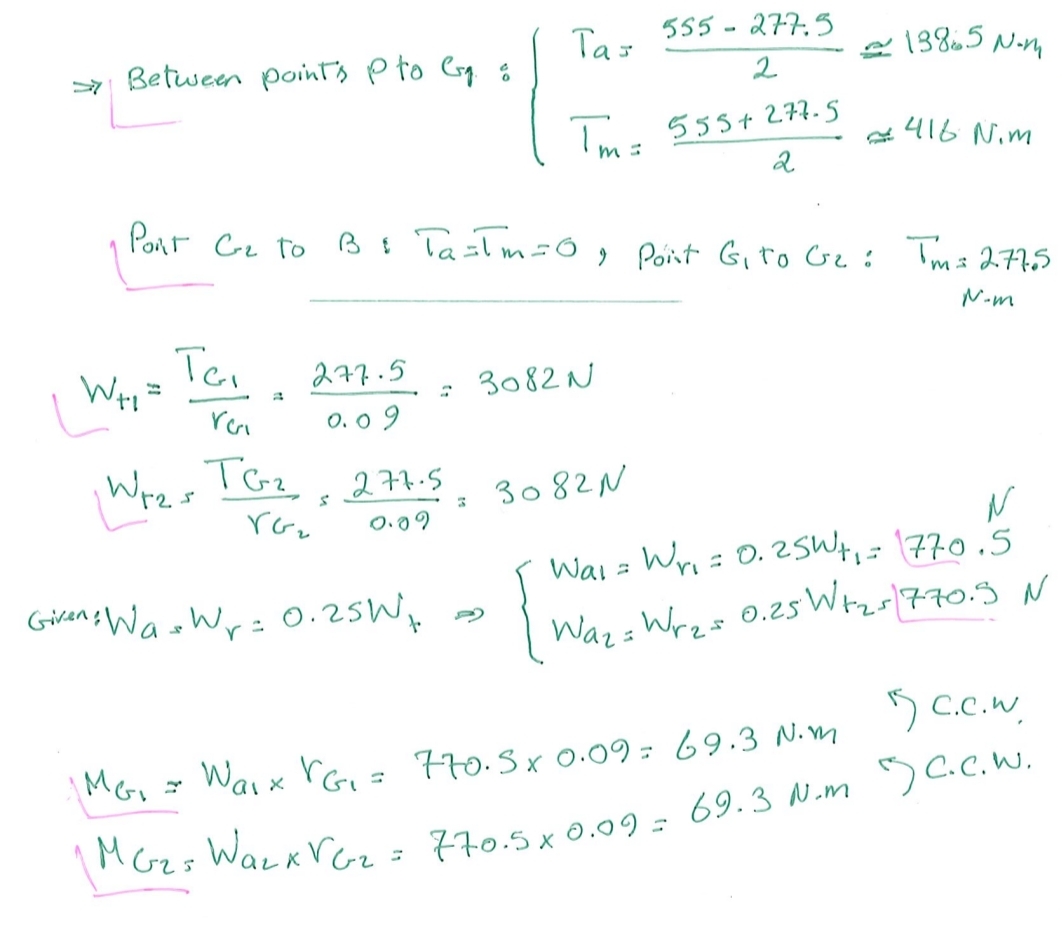 ⇒ Between points P to G1 : { Ta = (555 - 277.5)/2 ≃ 138.5 N.m
Tm = (555 + 277.5)/2 ≃ 416 N.m
Point G2 to B : Ta = Tm = 0 , Point G1 to G2 : Tm = 277.5 N-m
Wt1 = TG1/rG1 = 277.5/0.09 = 3082 N
Wt2 = TG2/rG2 = 277.5/0.09 = 3082 N
Given : Wa = Wr = 0.25Wt ⇒ { Wa1 = Wr1 = 0.25Wt1 = 770.5 N
Wa2 = Wr2 = 0.25 Wt2 = 770.5 N
MG1 = Wa1 x rG1 = 770.5 x 0.09 = 69.3 N.m ↰ C.C.W.
MG2 = Wa2 x rG2 = 770.5 x 0.09 = 69.3 N.m ↰ C.C.W.